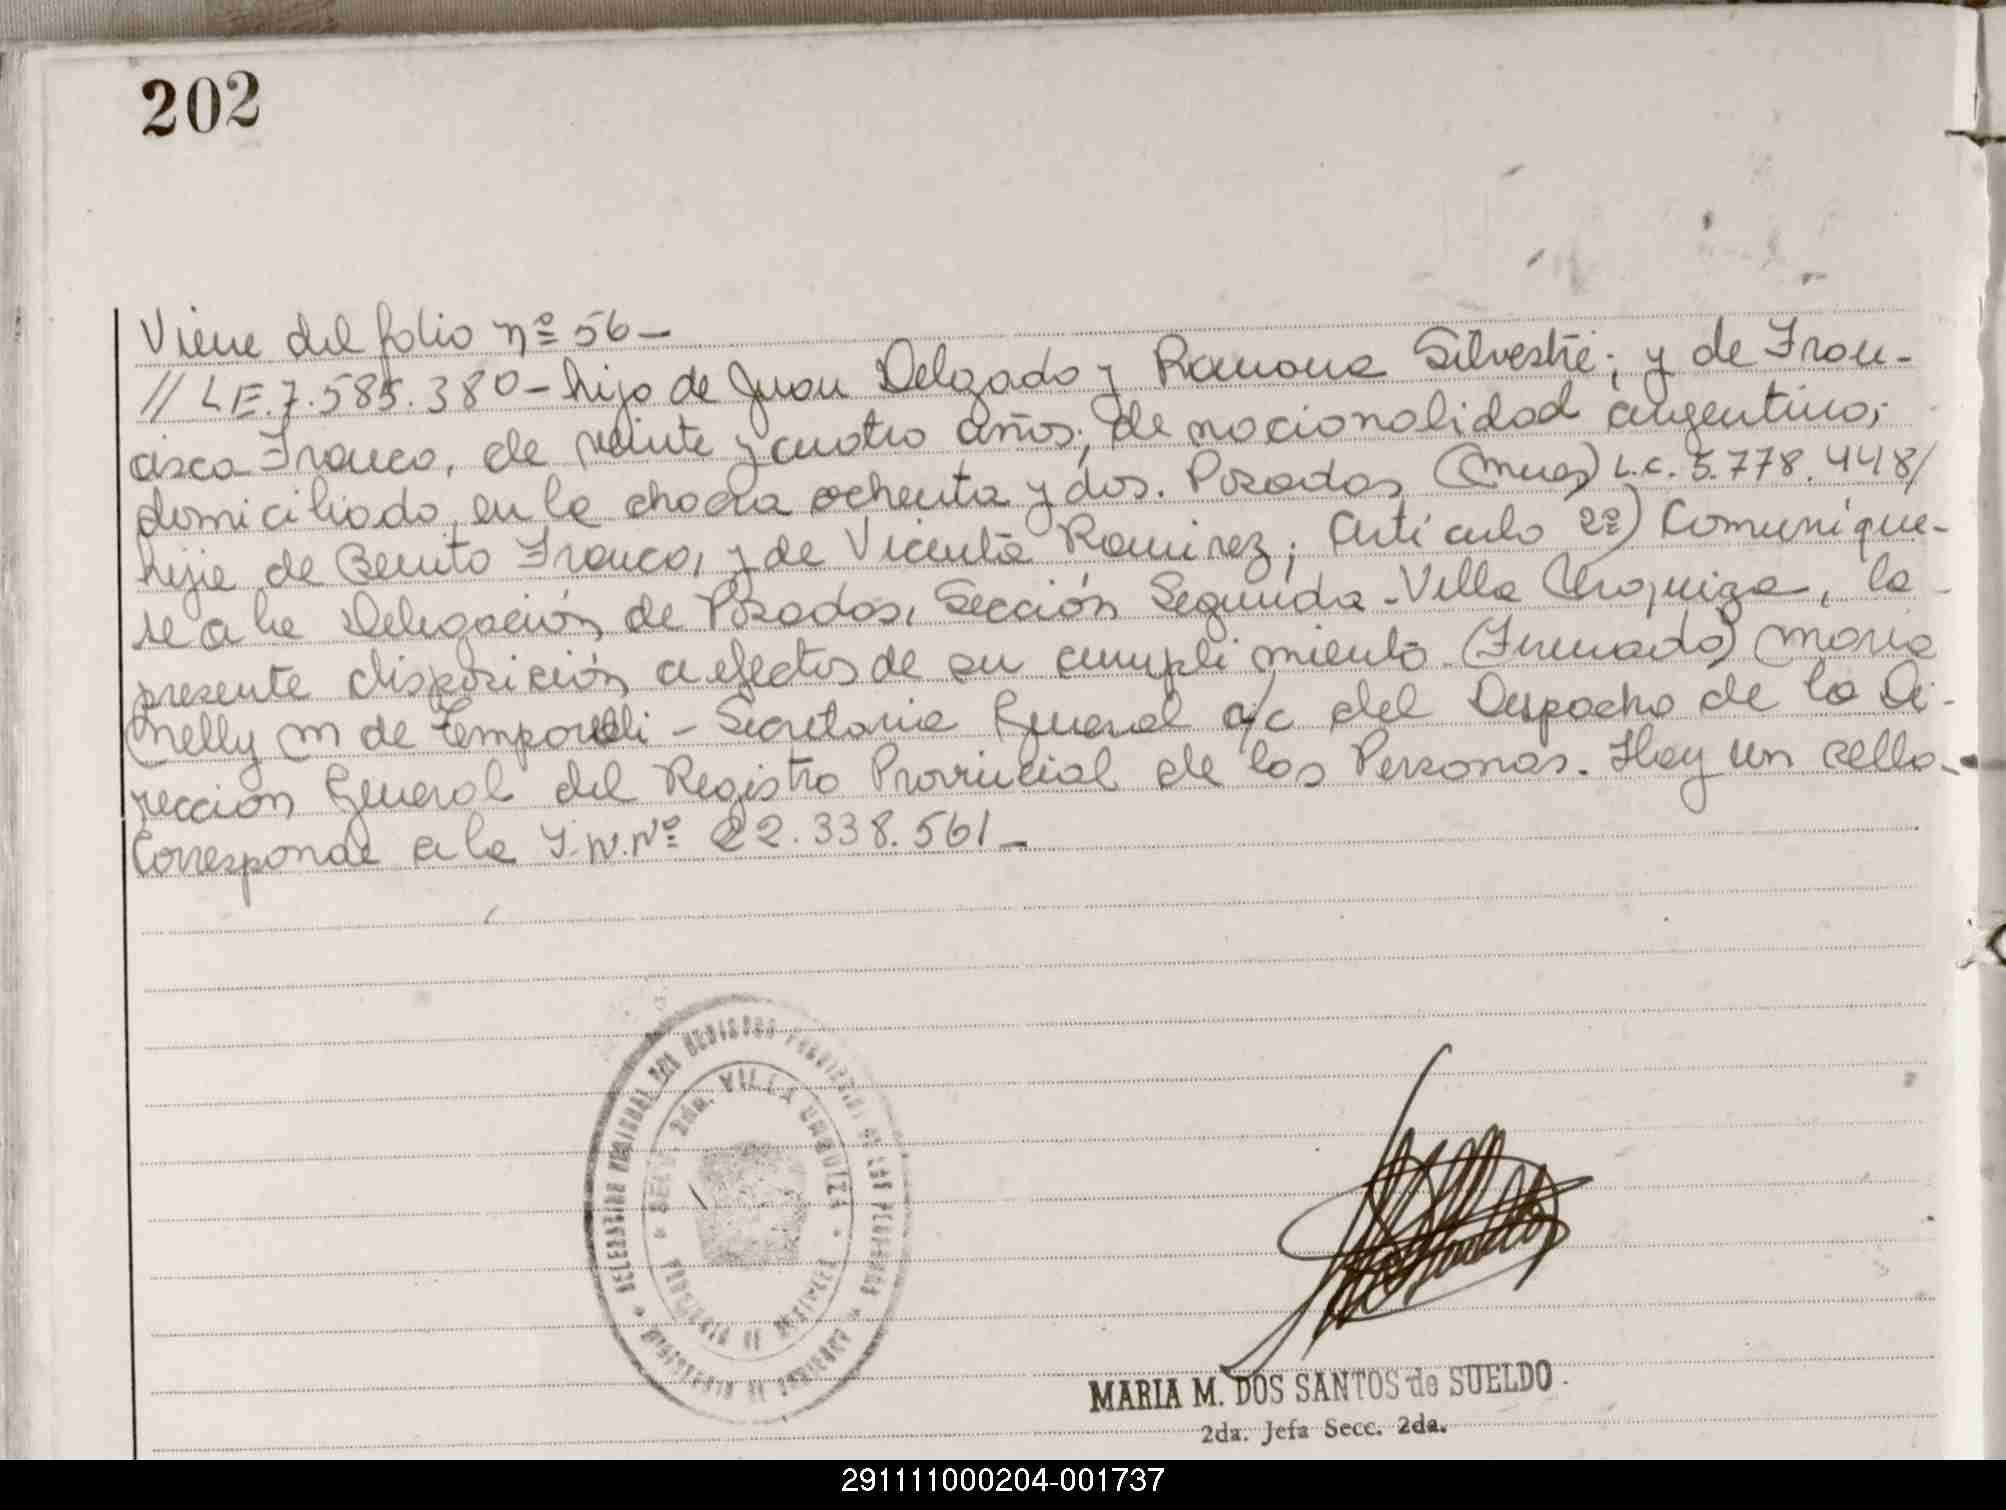 202
Viene del folio nº 56-
// LE.7.585.380-hijo de Juan Delgado y Ramona Silvestre; y de Fran-
cisca Franco, de veinte y cuatro años; de nacionalidad argentino;
domiciliado, en la chacra ochenta y dos. Posadas (Mnes) L.C. 5.778.448/
hija de Benito Franco, y de Vicenta Ramirez; Artículo 2º) Comunique-
se a la Delegación de Posadas, Sección Segunda-Villa Urquiza, la
presente disposición a efectos de su cumplimiento. (Firmado) Maria
Nelly M de Temporelli - Secretaria General a/c del Despacho de la Di-
rección General del Registro Provincial de las Personas. Hay un sello.
Corresponde a la I.N.Nº 22.338.561-
DELEGACION REGIONAL DEL REGISTRO PROVINCIAL DE LAS PERSONAS
SECC. 2da. VILLA URQUIZA
PROVINCIA DE MISIONES
MARIA M. DOS SANTOS de SUELDO
2da. Jefa Secc. 2da.
291111000204-001737